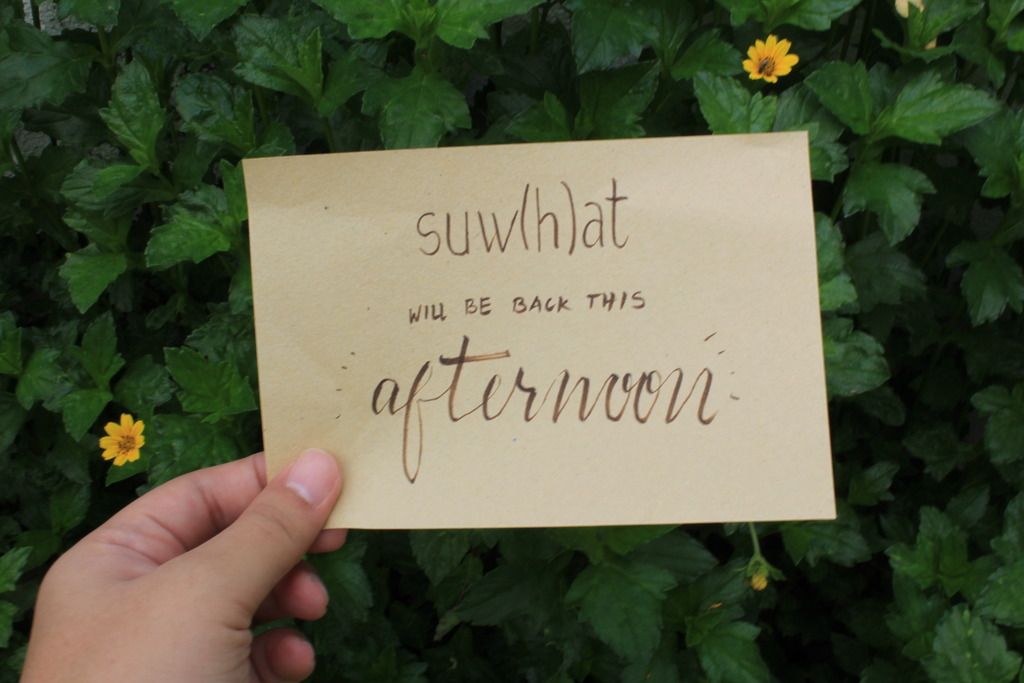 suw(h)at
WILL BE BACK THIS
afternoon